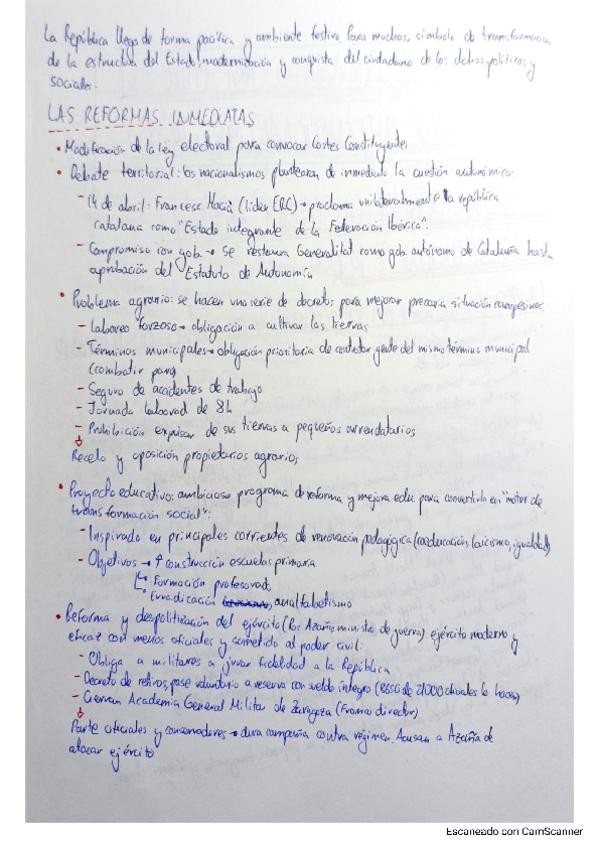 La República llega de forma pacífica y ambiente festivo. Para muchos, símbolo de transformación
de la estructura del Estado, modernización y conquista del ciudadano de los dchos políticos y
sociales.
LAS REFORMAS INMEDIATAS
• Modificación de la ley electoral para convocar Cortes Constituyentes
• Debate territorial: los nacionalismos plantearon de inmediato la cuestión autonómica.
- 14 de abril: Francesc Macià (líder ERC) → proclama unilateralmente la república
catalana como "Estado integrante de la Federación Ibérica".
- Compromiso con gob. → Se restaura Generalitat como gob. autónomo de Cataluña hasta
aprobación del Estatuto de Autonomía
• Problema agrario: se hacen una serie de decretos para mejorar precaria situación campesinos.
- Laboreo forzoso → obligación a cultivar las tierras
- Términos municipales → obligación prioritaria de contratar gente del mismo término municipal
(combatir paro)
- Seguro de accidentes de trabajo
- Jornada laboral de 8h
- Prohibición expulsar de sus tierras a pequeños arrendatarios
↓
Recelo y oposición propietarios agrarios
• Proyecto educativo: ambicioso programa de reforma y mejora edu. para convertirlo en "motor de
transformación social":
- Inspirado en principales corrientes de renovación pedagógica (coeducación, laicismo, igualdad)
- Objetivos → ↑ construcción escuelas primaria
↳ Formación profesorado
Erradicación analfabetismo
• Reforma y despolitización del ejército (Por Azaña ministro de guerra), ejército moderno y
eficaz con menos oficiales y sometido al poder civil:
- Obliga a militares a jurar fidelidad a la República
- Decreto de retiros, pase voluntario a reserva con sueldo íntegro ( de 21000 oficiales lo hacen)
- Cierran Academia General Militar de Zaragoza (Franco director)
↓
Parte oficiales y conservadores → dura campaña contra régimen. Acusan a Azaña de
atacar ejército
Escaneado con CamScanner